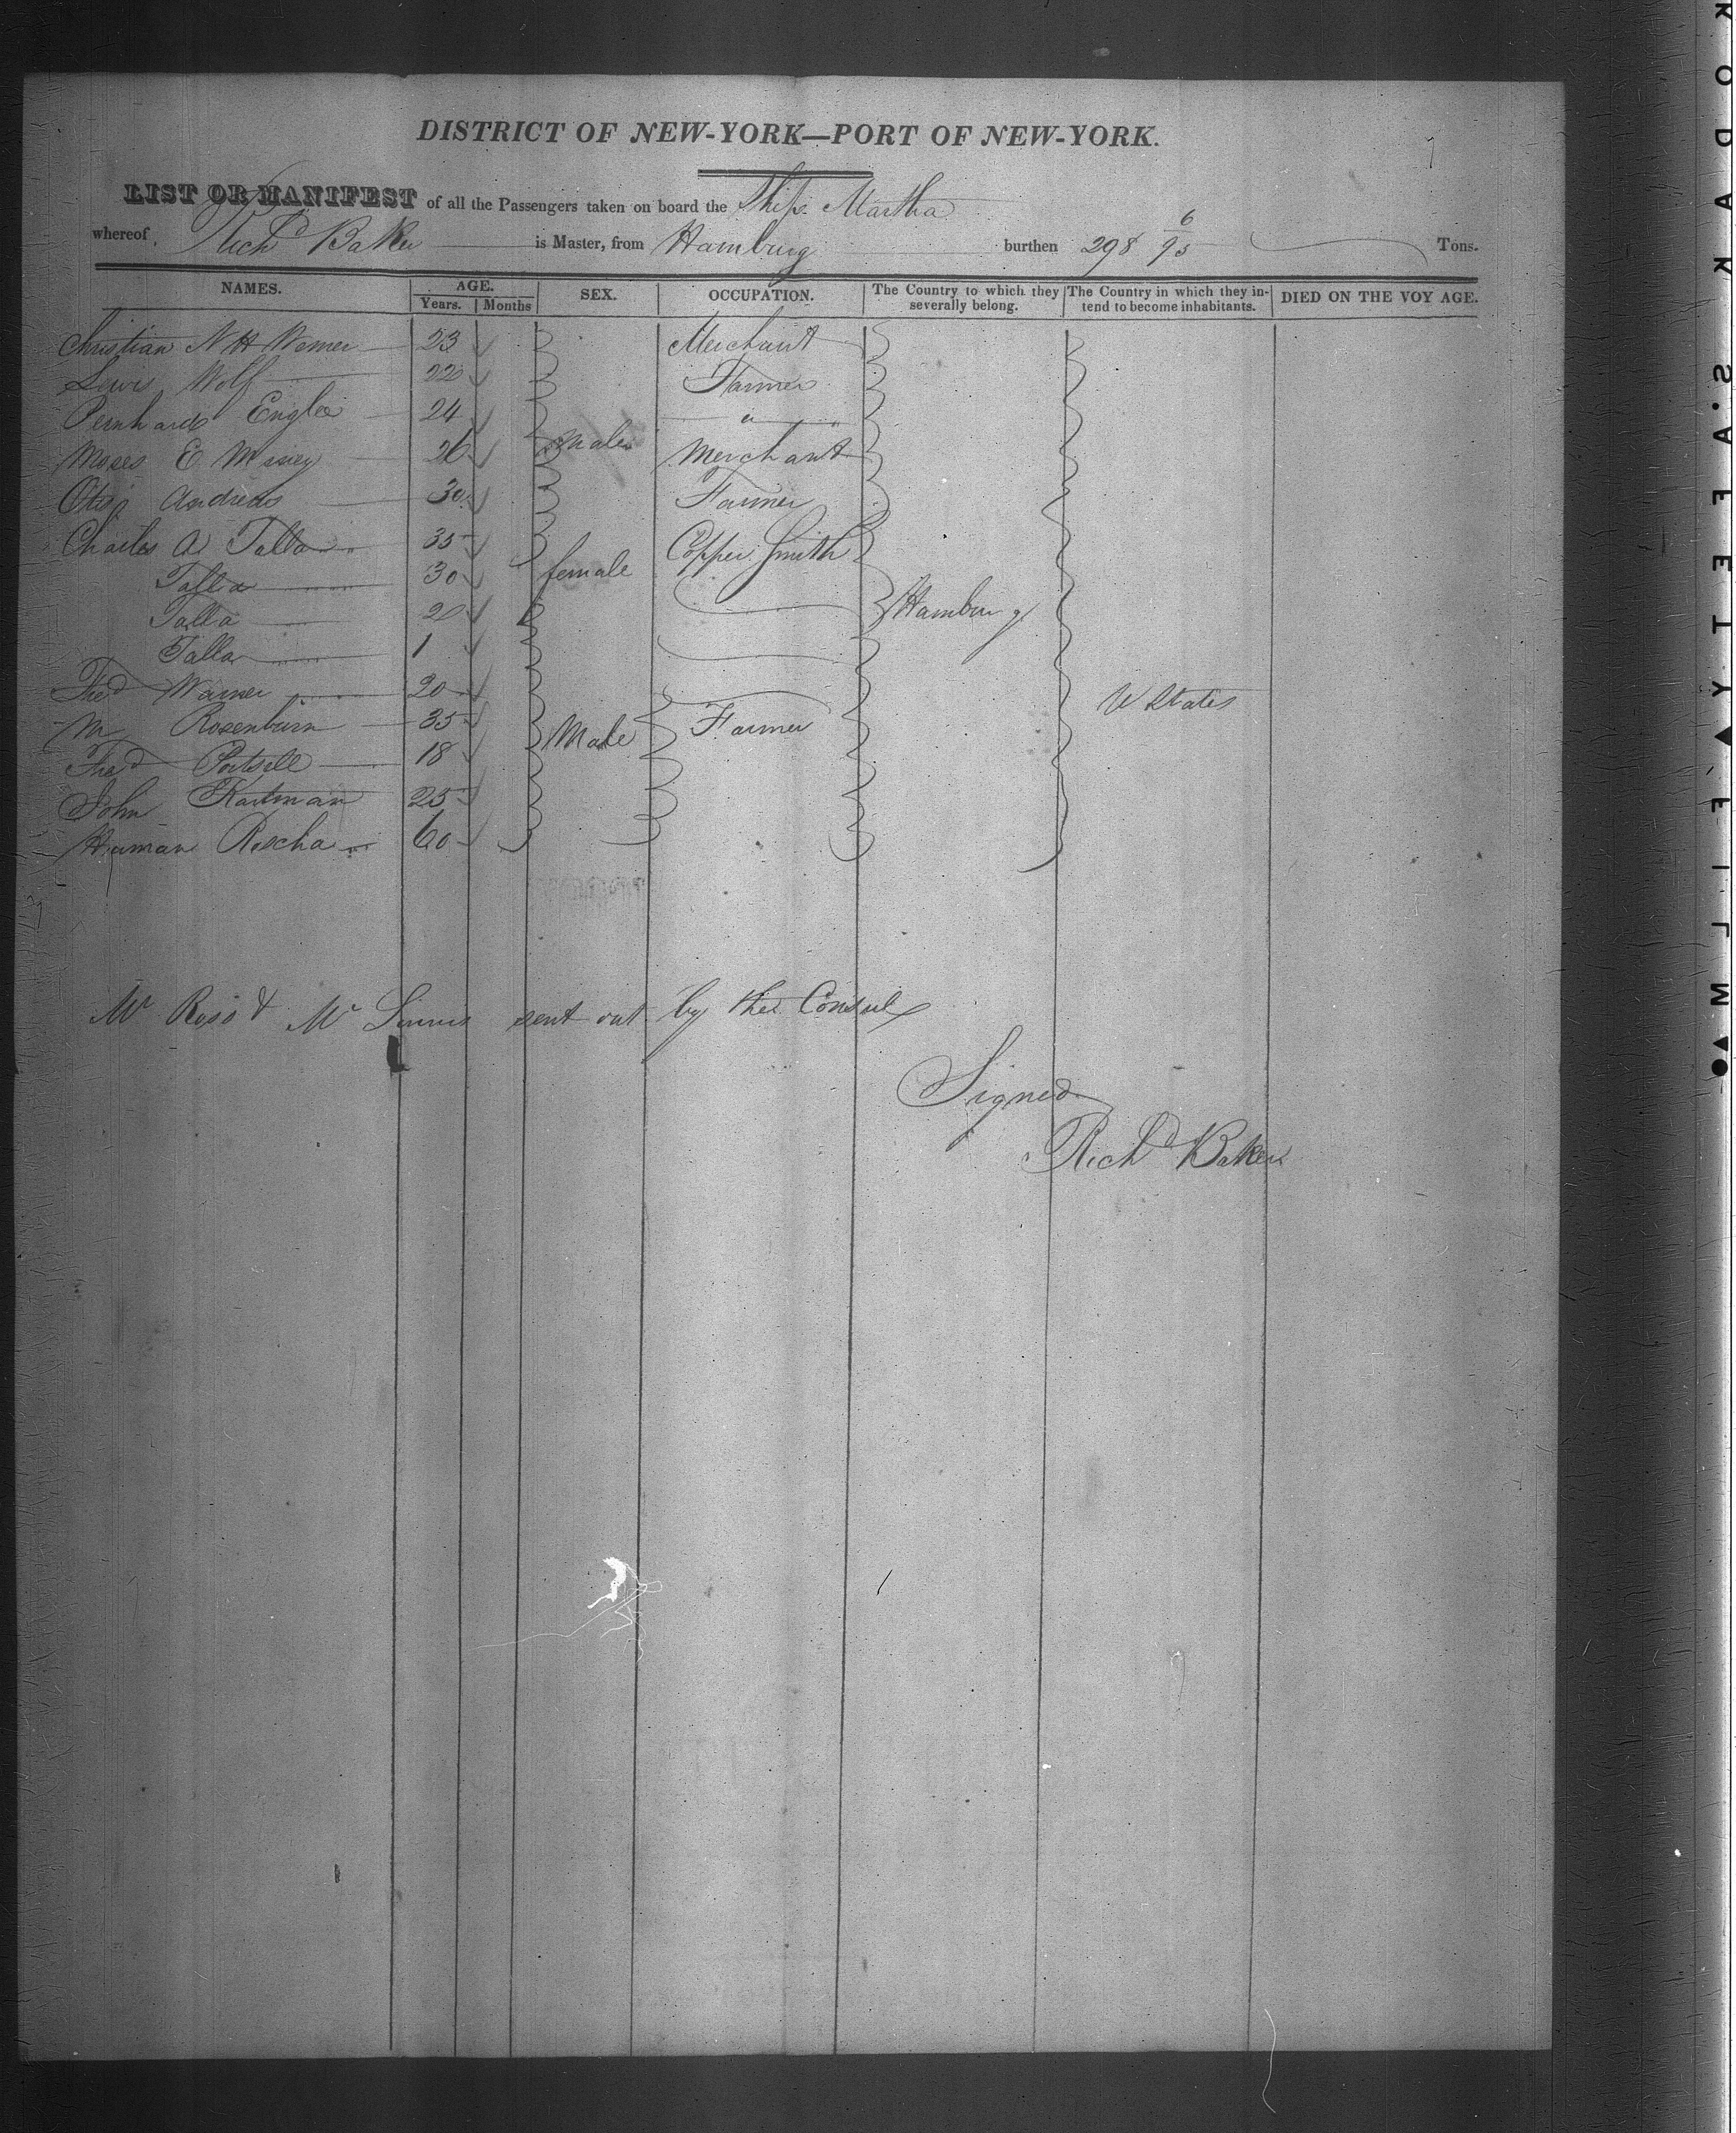 DISTRICT OF NEW-YORK—PORT OF NEW-YORK.
LIST OR MANIFEST of all the Passengers taken on board the Ship Martha
whereof Richd Baker is Master, from Hamburg burthen 298 6/95 Tons.
NAMES. AGE. SEX. OCCUPATION. The Country to which they severally belong. The Country in which they intend to become inhabitants. DIED ON THE VOYAGE.
Years. Months
Christian N H Werner 23 Merchant
Lewis Wolf 22 Farmer
Bernhard 24 "
Moses E 26 Male Merchant
Otto Andreas 30 Farmer
Charles A Talla 35 Copper Smith
Talla 30 female
Talla 20 Hamburg
Talla 1
Fred Warner 20 U States
M Rosenburn 35 Male Farmer
Fred 18
John Kartman 25
Herman Rischa 60
Mr Ross & Mr sent out by the Consul
Signed
Richd Baker